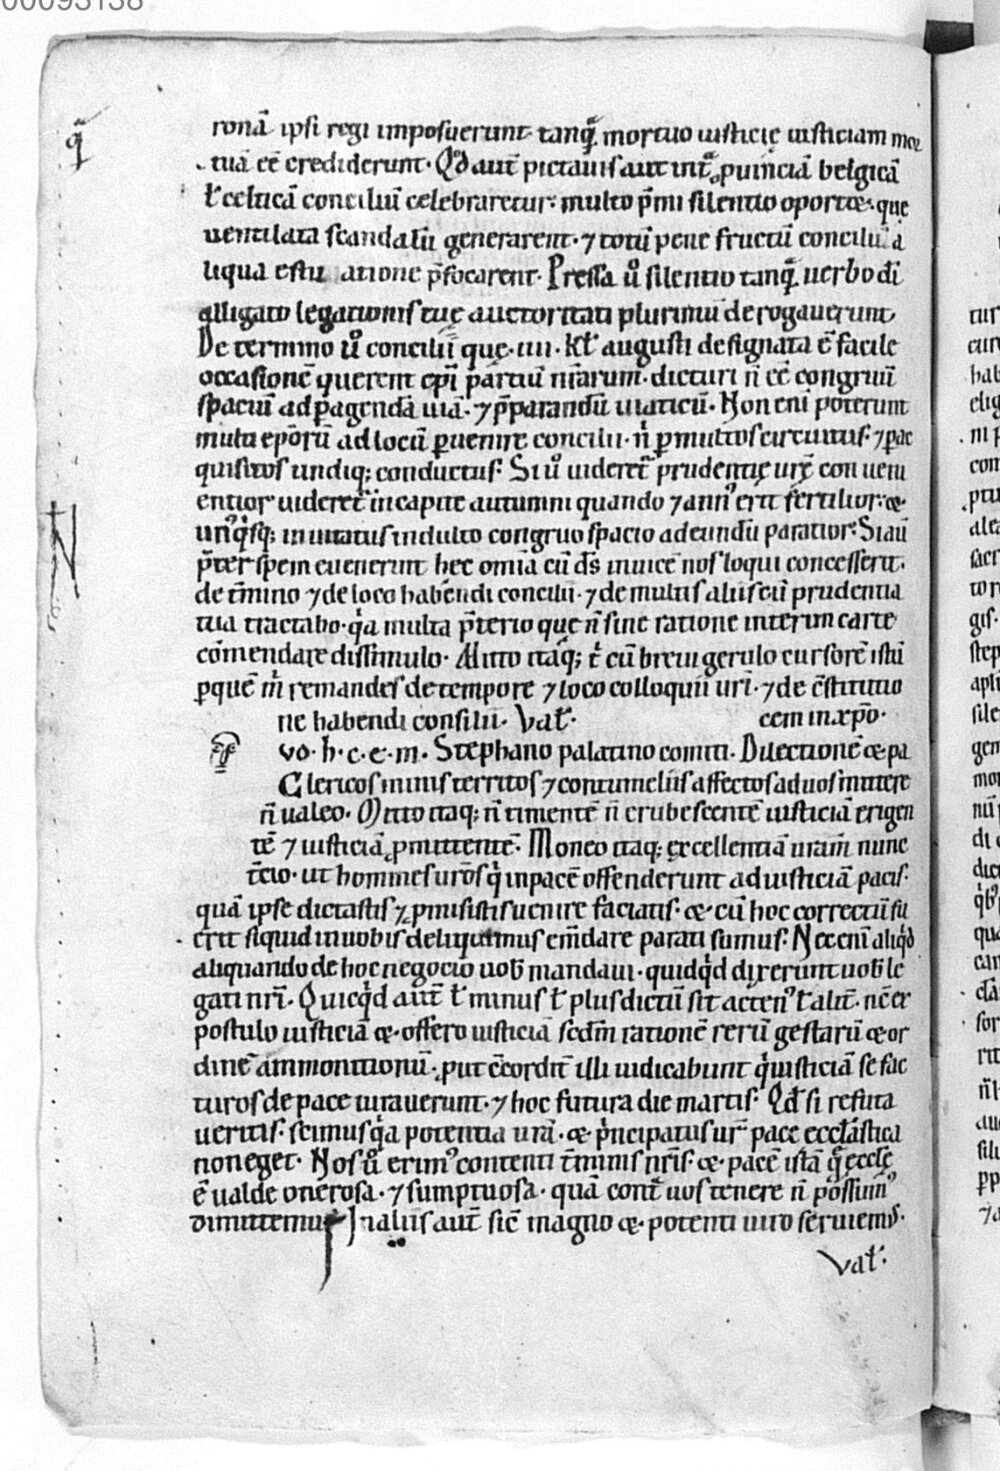 00093138
q̃
ronā ipsi regi imposuerunt tanq̃ mortuo iusticię iusticiam mor
tuā eē crediderunt. Qđ aut̄ pictauis aut int̃ ꝓuinciā belgicā
ł celticā conciliū celebraretur. multo p̄mi silentio oportet. que
uentilata scandalū generarent. ⁊ totū pene fructū concilii a
liqua estu atione p̄focarent. Pressa u͛o silentio tanq̃ uerbo dī
alligato legationis tuę auctoritati plurimū derogauerunt
De termino u͛o concilii que. iiii. kł augusti designata ē facile
occasionē querent ep̄i partiū nr̄arum. dicturi n̄ eē congruū
spaciū ad ꝑagendā uiā. ⁊ p̄parandū uiaticū. Non eni poterunt
multi ep̄orū ad locū ꝑuenire concilii. n ͥ ꝑ multos circuitus. ⁊ ꝑ ac
quisitos undiq; conductus. Si u͛o uideret͛ prudentię urę̄ conueni
entior uideret͛ in capite autumni quando ⁊ ann᾽ erit fertilior. &
un᾽qͥsq; inuitatus indulto congruo spacio ad eundū paratior. Si aū
p̄ter spem euenerint hec omīa cū d̄s inuicē nos loqui concesserit.
de t̄mino ⁊ de loco habendi concilii. ⁊ de multis aliis cū prudentia
tua tractabo. qͣa multa p̄terio que n̄ sine ratione interim carte
cōmendare dissimulo. Mitto itaq; t ͥ cū breui gerulo cursorē istū
ꝑ quē m ͥ remandes de tempore ⁊ loco colloquii uri. ⁊ de c̄stitutio
ne habendi consilii. Vał. cem in xp̄o.
vo. h. c. e. m. Stephano palatino comiti. Dilectionē & pa
Clericos minis territos ⁊ contumeliis affectos ad uos mittere
n̄ ualeo. Mitto itaq; n̄ timentē n̄ erubescentē iusticiā erigen
tē ⁊ iusticiā ꝓmittentē. Moneo itaq; excellentiā uram̄ nunc
t̄cio. ut homines uros̄ qͥ in pacē offenderunt ad iusticiā pacis.
quā ipse dictastis ⁊ ꝓmisistis uenire faciatis. & cū hoc correctū fu
erit siquid in uobis deliquimus em̄dare parati sumus. Nec eni aliqͥd
aliquando de hoc negocio uob̄ mandaui. quidqͥd dixerunt uob̄ le
gati nri. Quicqͥd aut̄ ł minus ł plus dictū sit acten᾽ ł alit͛. nē ex
postulo iusticiā &. offero iusticiā scdm̄ rationē rerū gestarū & or
dinē ammonitionū. ꝓut c̄cordit͛ illi iudicabunt qͥ iusticiā se fac
turos de pace iurauerunt. ⁊ hoc futura die martis. Qđ si refuta
ueritis. scimus qͣa potentia urā. & pͥncipatus ur̄ pace eccłastica
non eget. Nos u͛o erim᾽ contenti t̄minis nr̄is. & pacē istā q̄ ecclę
ē ualde onerosa. ⁊ sumptuosa. quā cont͛ uos tenere n̄ possum᾽
dimittemus. In aliis aut̄ sic̄ magno &. potenti uiro seruiem᾽.
Vał.